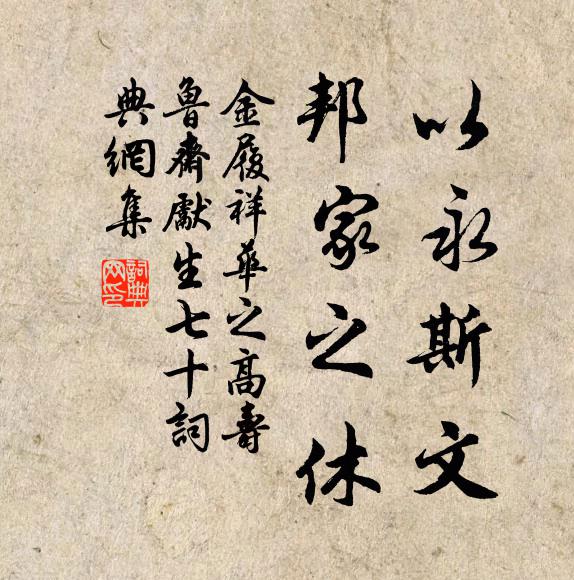 以永斯文
邦家之休
金履祥華之高壽
魯齋獻生七十詞
典網集
詞典網印